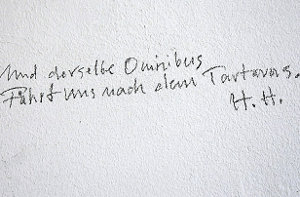 Und derselbe Omnibus
Fährt uns nach dem Tartarus.
H. H.